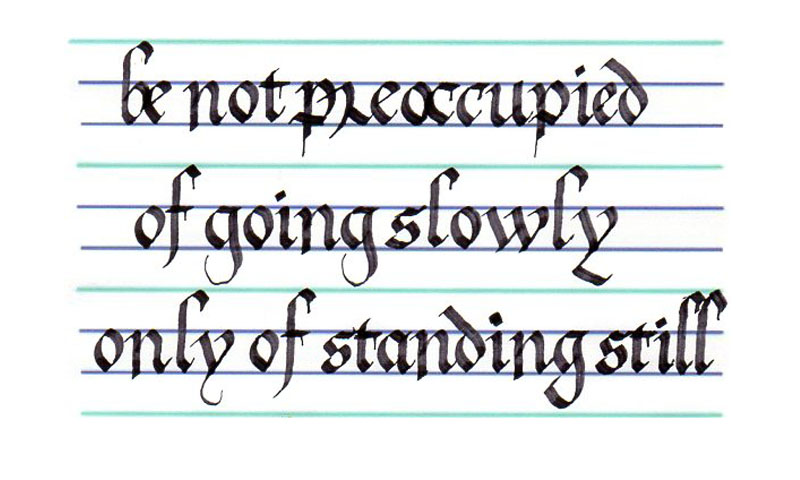 be not preoccupied
of going slowly
only of standing still